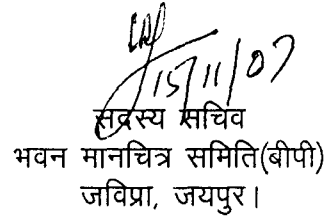 15/11/07
सदस्य सचिव
भवन मानचित्र समिति(बीपी)
जविप्रा, जयपुर।